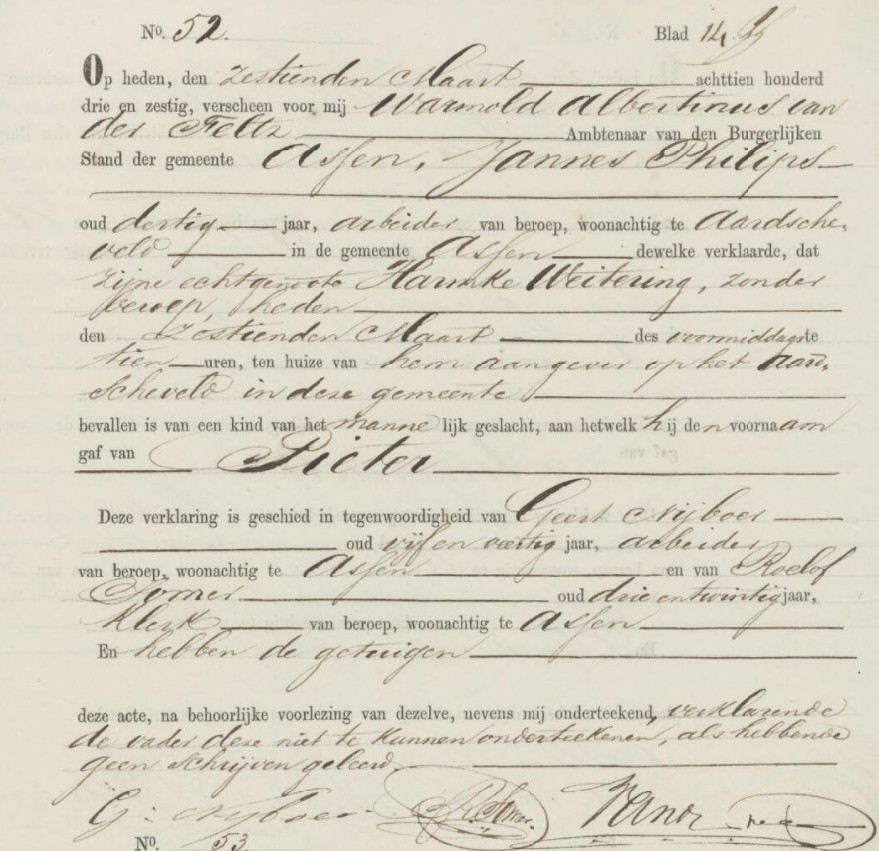 No. 52. Blad 14.
Op heden, den zestienden Maart achttien honderd
drie en zestig, verscheen voor mij Warmold Albertinus van
der Feltz Ambtenaar van den Burgerlijken
Stand der gemeente Assen, Jannes Philips
oud dertig jaar, arbeider van beroep, woonachtig te Aardsche,
veld in de gemeente Assen dewelke verklaarde, dat
zijne echtgenoote Harmke Weitering, zonder
beroep, heden
den zestienden Maart des voormiddags te
tien uren, ten huize van hem aangever op het Aard,
scheveld in deze gemeente
bevallen is van een kind van het mannelijk geslacht, aan hetwelk hij den voornaam
gaf van Pieter
Deze verklaring is geschied in tegenwoordigheid van Geert Nijboer
oud vijf en veertig jaar, arbeider
van beroep, woonachtig te Assen en van Roelof
Somer oud drie en twintig jaar,
klerk van beroep, woonachtig te Assen
En hebben de getuigen
deze acte, na behoorlijke voorlezing van dezelve, nevens mij onderteekend, verklarende
de vader deze niet te kunnen onderteekenen, als hebbende
geen schrijven geleerd.
G: Nijboer R. Somer.
No. 53